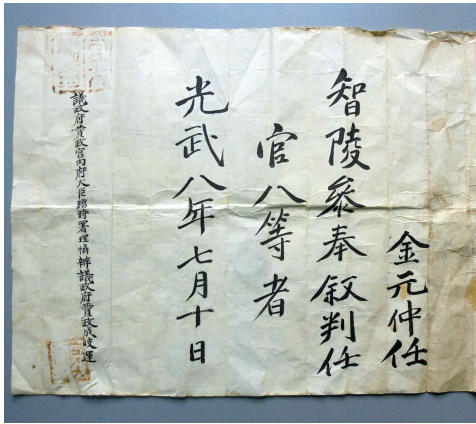 金元仲任
智陵叅奉叙判任
官八等者
光武八年七月十日
議政府賛政宮內府大臣臨時署理攝辦議政府賛政成岐運